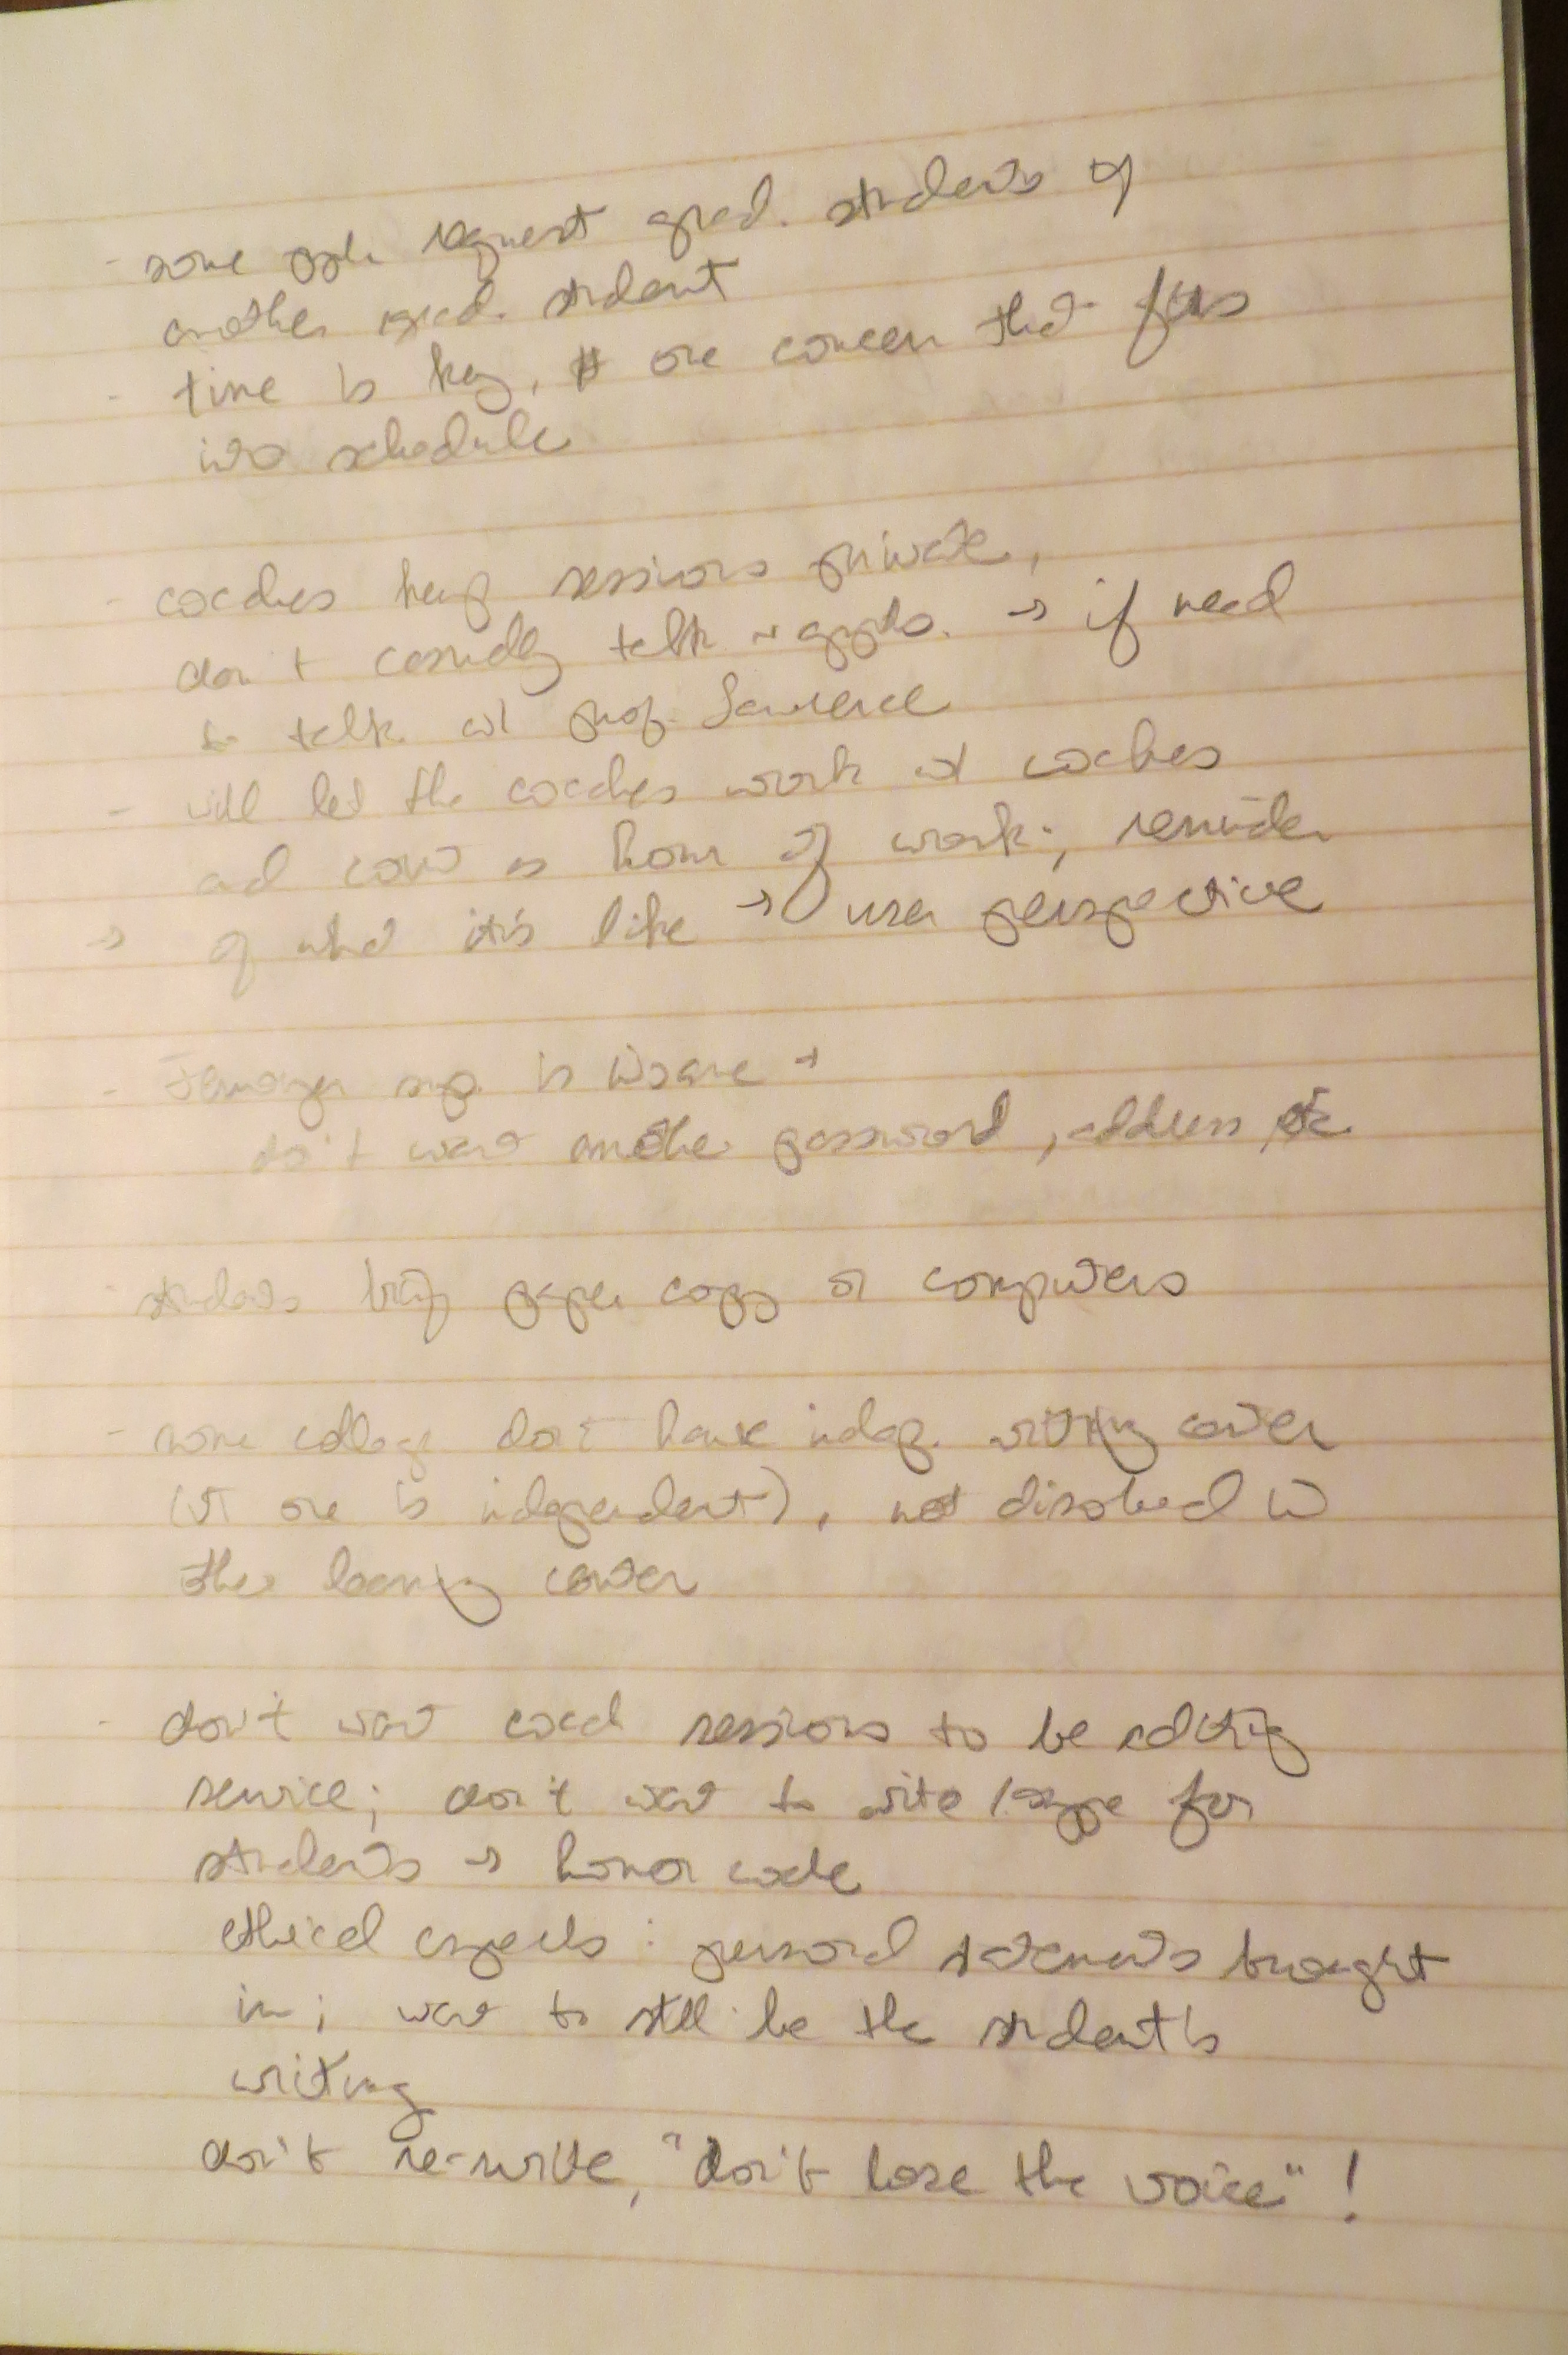 - some ppl request grad. students if
another grad. student
- time is key, # one concern that fits
into schedule
- coaches keep sessions private,
don't casually talk appts. → if need
to talk w/ prof. Lawrence
- will let the coaches work w/ coaches
and count as hour of work; reminder
→ of what it's like → user perspective
- sign is insane +
don't want another password, address, etc
- students bring paper copy or computers
- some college don't have indep. writing center
(VT one is independent), not dissolved in
the learning center
- don't want coach sessions to be editing
service; don't want to write / type for
students → honor code
ethical aspects: personal statements brought
in; want to still be the student's
writing
don't re-write, "don't lose the voice"!